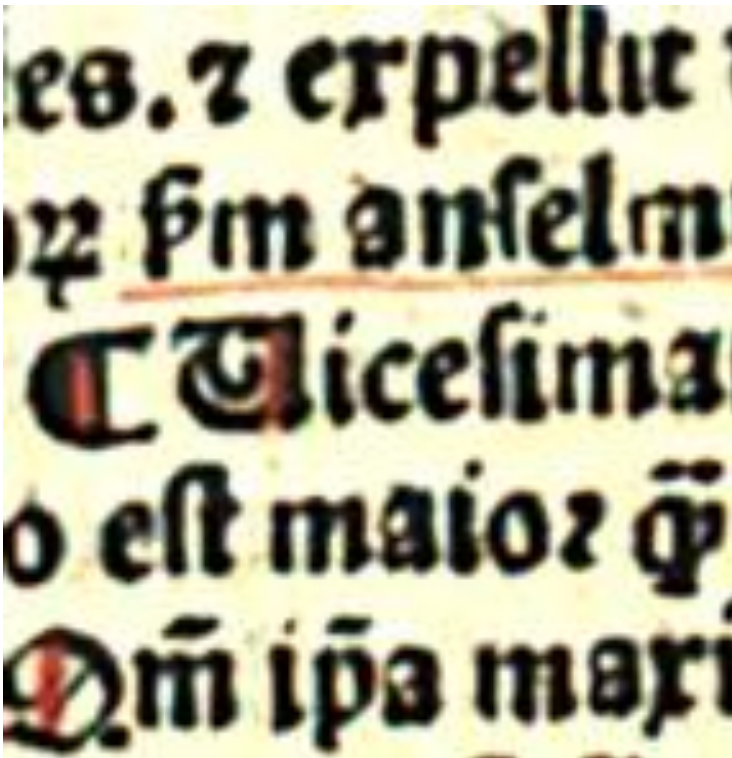 es. ⁊ expellit
oꝝ ẜm anselm
¶ Uicesima
o est maior qͣ̈
Qm̄ ip̄a maxi